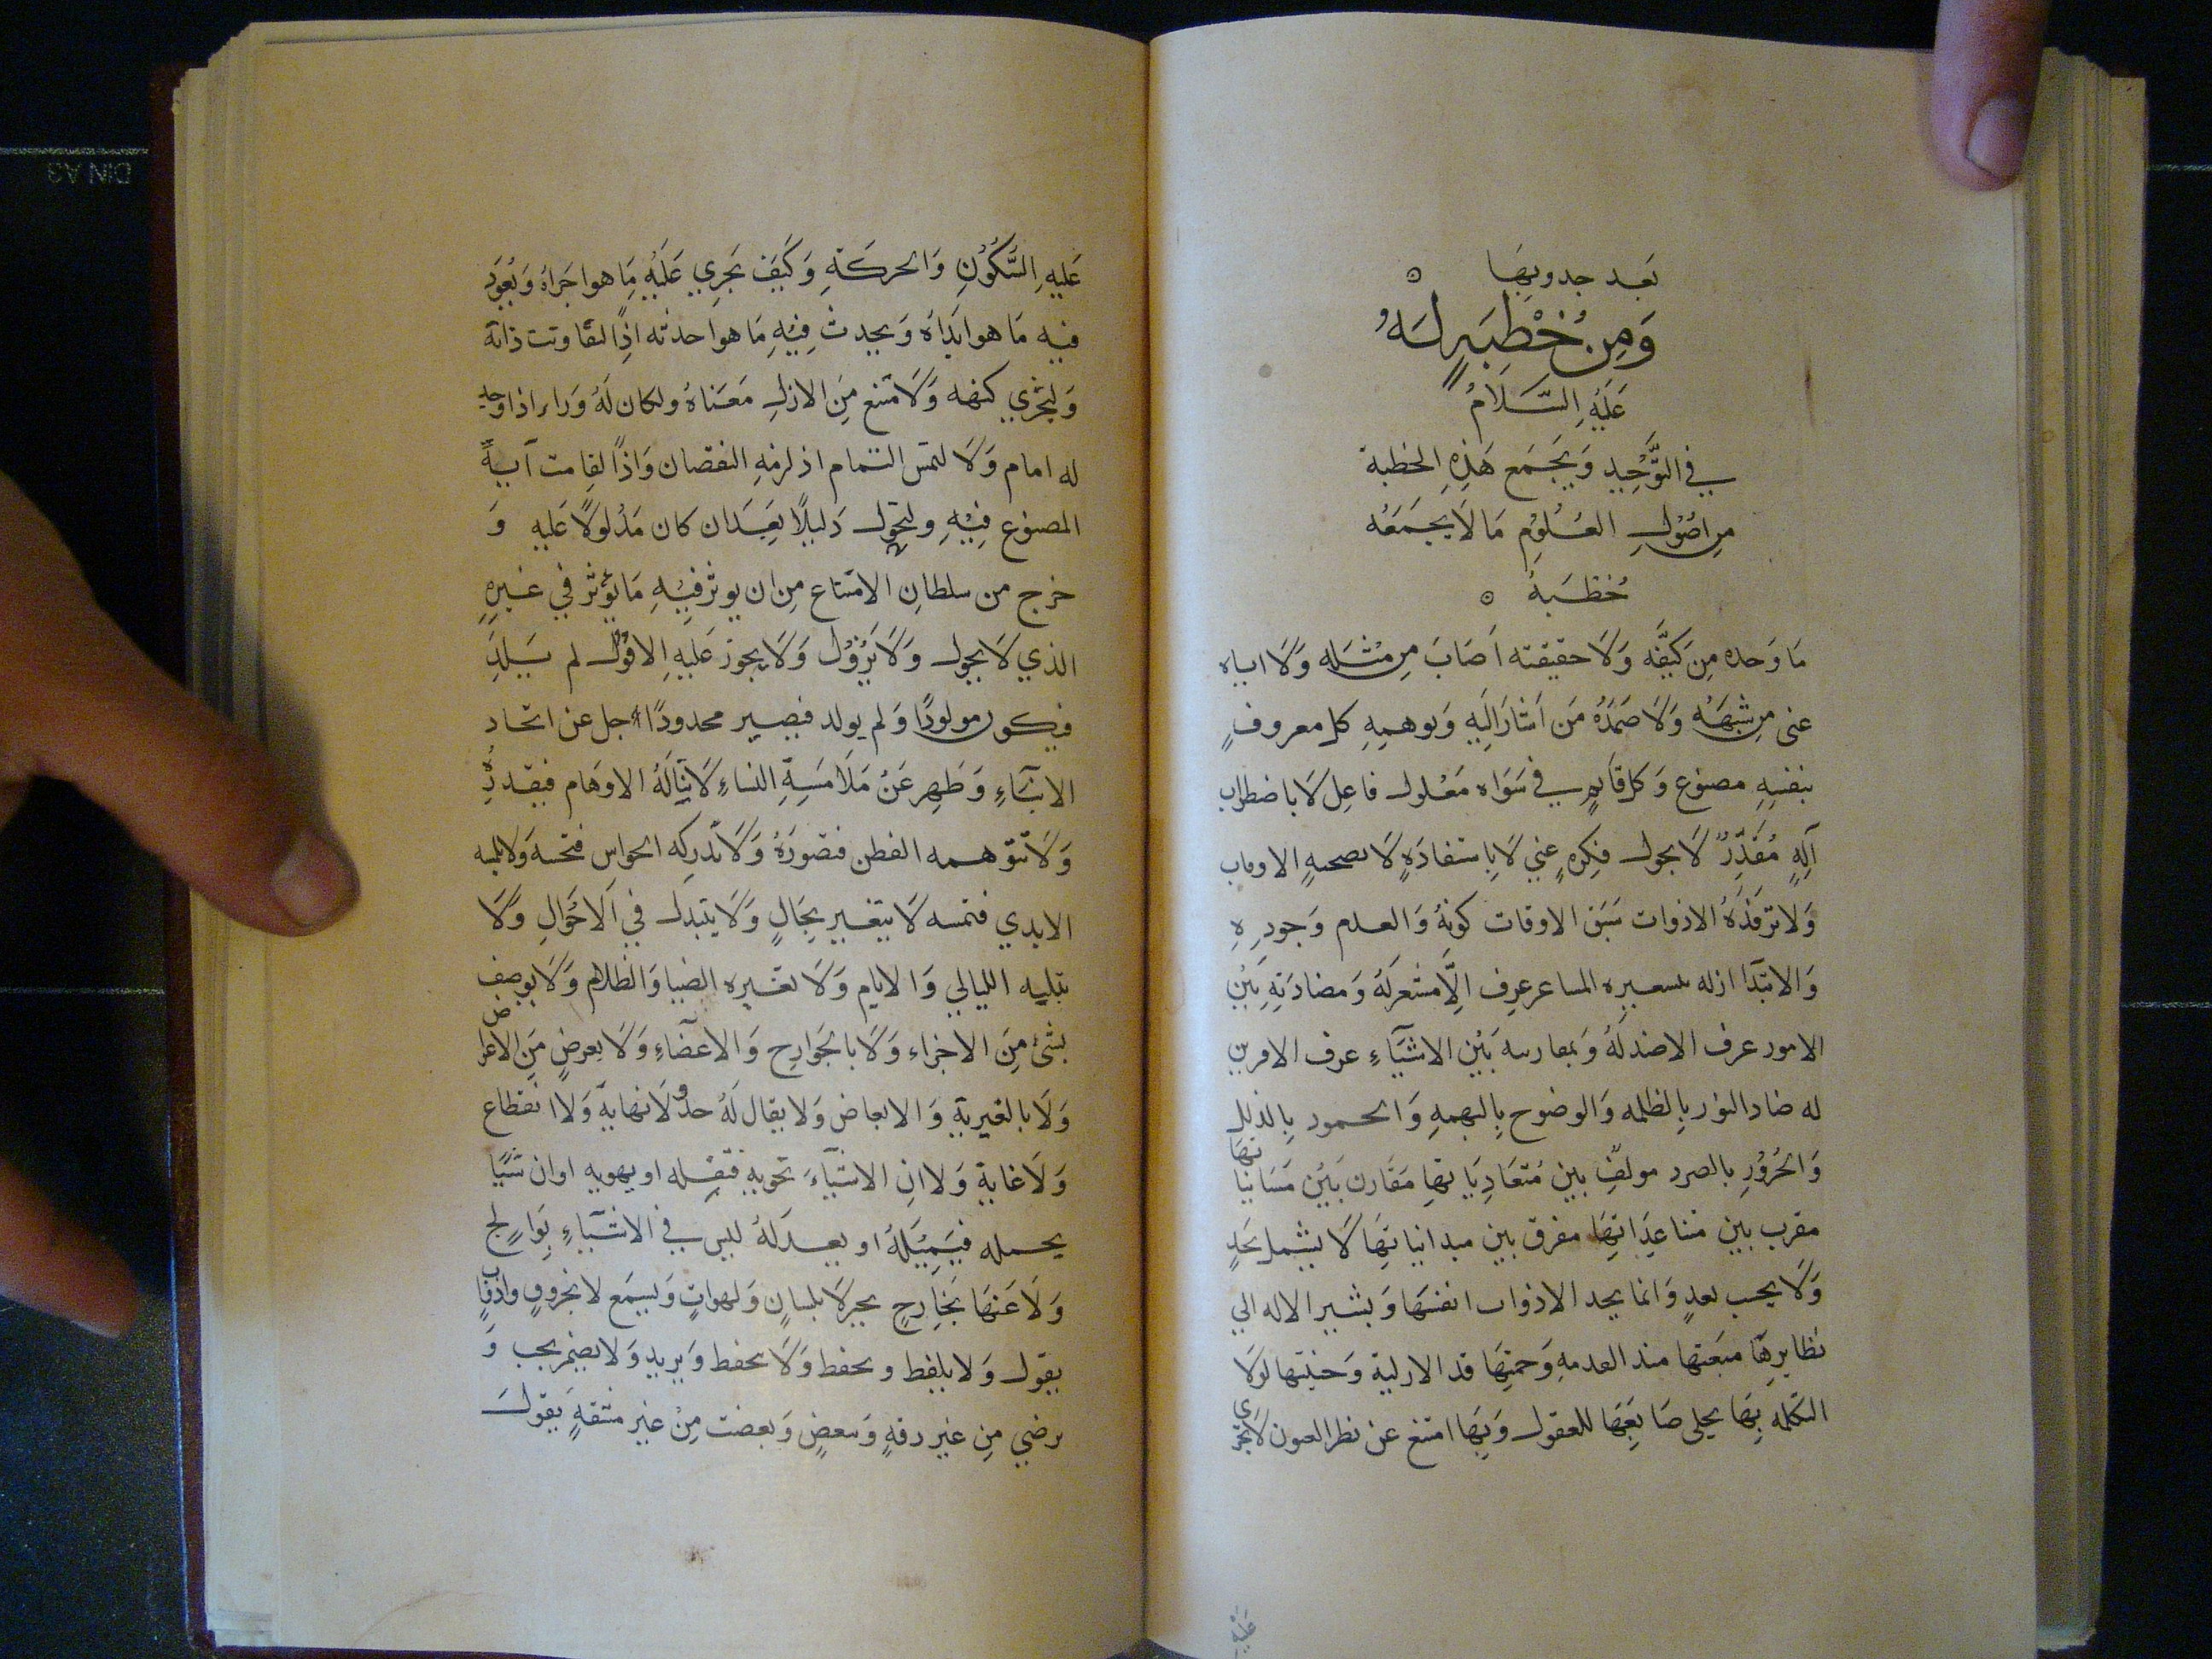 بَعد جدوبِهَا ⊙
وَمِن خُطْبَةٍ لَهُ
عَلَيْهِ السَّلَامُ
في التَّوَحِيد وَيَجَمَع هَذِهِ الخطبة
مِن اصُولِ العُلُومِ مَا لَا يجمَعُه
خُطبَةُ ⊙
مَا وَحده مِن كَيَّفَه وَلَا حقيقته اَصَابَ مِن مثله وَلَا اياه
عنى مِن شبَهَهُ وَلَا صَمَدَهُ مَن اَشَارَ الَيهِ وَتوهمهِ كل معروفٍ
بنفسِهِ مصنوع وَكل قَايمٍ في سَوَاه مَعْلول فاعِل لَا باضطراب
اَلِهٍ مُقَدِّرٌ لَا بجول فِكرةٍ غني لَا بِاستفادَهٍ لَا تصحبهِ الاوقات
وَلا ترفدهُ الاذوات سَبَق الاوقات كونهُ وَالعدم وَجودهِ
وَالابتدَا ازله بتشعيره المشاعر عرِف الَّا مشعَر لَهُ وَمضادتهِ بَيْنَ
الامور عرف الا ضد لَهُ وَبمقارنته بَيْن الاشيَآءِ عرف الا قرين
له ضاد النور بِالظلمه وَالوضوح بِالبهمهِ وَالجمود بِالبلل
وَالحُرُوْرِ بالصرد مولف بين مُتعَادِيَاتها مقارن بَيْن متبايناتهَا
مقرب بين متباعِدَاتهَا مفرق بين متدانياتِهَا لَا يشمل بحَدٍ
وَلَا يحسب بعدٍ وَانما يحد الاذوات انفسهَا وَيشير الاله الي
نظايرهَا منعتها منذ القدمهِ وَحمتهَا قد الازلية وَجنبتها لولَا
التكلمه بِهَا تجلى صَانِعُهَا للعقول وَبِهَا امتنع عن نظر العيون لَا يجري
عليه
عَليهِ السُّكُوْنِ وَالحركَةِ وَكَيفَ يَجرِي عَلَيْهِ مَا هوا جَراهُ وَيُعود
فيه مَا هو ابدَاه وَيحدث فِيْهِ مَا هو احدثه اِذًا لتفاوتت ذاته
وَلتجزي كنهه وَلَامتنع مِنَ الازلِ مَعنَاهُ ولكان لَهُ وَراء اذا وجد
له امام وَلَا لتمس التمام اذ لزمهِ النقصان وَاذًا لقامت آيةُ
المصنوع فِيْهِ ولتحول دَليلًا بَعِدَ ان كان مَدْلولًا عَليه وَ
خرج من سلطانِ الامتناع مِن ان يوثر فيهِ مَا يؤثر في غيرِهِ
الذي لَا يحول وَلَا يَزُوْل وَلَا يجوز عَليهِ الافُول لم يَلِدَ
فيكون مولودًا وَلم يولد فيصير محدودًا جل عن اتخاد
الابنَآءِ وَطهر عَنْ مَلَامَسِهِ النساءِ لَا تَنَالهُ الاوهَام فتقدرهُ
وَلَا تتوهمه الفطن فتصورَهُ وَلَا تدركه الحواس فتحسه وَلا تلمسه
الايدي فتمسه لَا يتغير بِحَالٍ وَلَا يتبدل في الَاحْوَالِ وَلَا
تبليه الليالي وَالايام وَلَا تغيره الضيا وَالظلام وَلَا يوصف
بشئ مِنَ الاجزاء وَلَا بالجَوارح وَالاعضَاءِ وَلَا بعرضٍ مِنَ الاعراض
وَلَا بالغيرية وَالابعاض وَلا يقال لَهُ حدٌ وَلَا نهايةٌ وَلا انقطاع
وَلَا غايةٍ وَلا ان الاشيآءَ تحويهِ فتقله او تهويه او ان شيًا
يحمله فيَميلهُ او يعدلهُ ليس في الاشيَاءِ بِوَالجٍ
وَلَا عَنهَا بخَارجٍ يخبر لَا بلسانٍ وَلهواتٍ وَيسمَع لا بخروقٍ وادواتٍ
يقول وَلا يلفظ وَيحفط وَلَا يتحفط وَيريد وَلا يضمر يحب وَ
يرضي مِن غير رقهٍ وَيبغضٍ وَيغضب مِنْ غير مشقهٍ يَقول